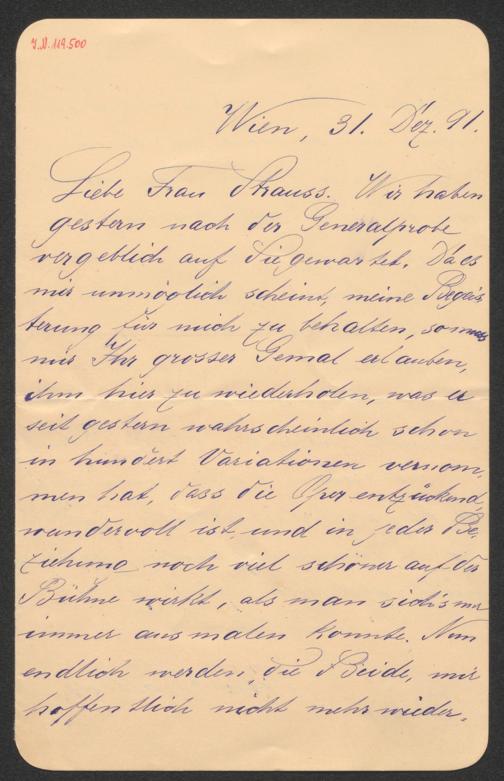 I.N. 119.500
Wien, 31. Dez. 91.
Liebe Frau Strauss. Wir haben
gestern nach der Generalprobe
vergeblich auf Sie gewartet. Da es
mir unmöglich scheint, meine Begeis-
terung für mich zu behalten, so muss
mir Ihr grosser Gemal erlauben,
ihm hier zu wiederholen, was er
seit gestern wahrscheinlich schon
in hundert Variationen vernom-
men hat, dass die Oper entzückend,
wundervoll ist und in jeder Be-
ziehung noch viel schöner auf der
Bühne wirkt, als man sich's nur
immer ausmalen konnte. Nun
endlich werden die Beide, mir
hoffentlich nicht mehr wieder-